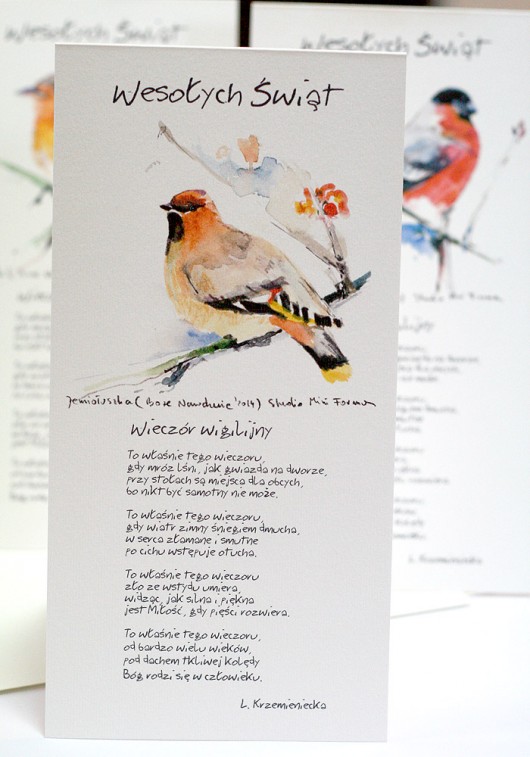 Wesołych Świąt
Jemiołuszka (Boże Narodzenie '2014) Studio Mini Forma
Wieczór wigilijny
To właśnie tego wieczoru,
gdy mróz lśni, jak gwiazda na dworze,
przy stołach są miejsca dla obcych,
bo nikt być samotny nie może.
To właśnie tego wieczoru,
gdy wiatr zimny śniegiem dmucha,
w serca złamane i smutne
po cichu wstępuje otucha.
To właśnie tego wieczoru
zło ze wstydu umiera,
widząc, jak silna i piękna
jest Miłość, gdy pięści rozwiera.
To właśnie tego wieczoru,
od bardzo wielu wieków,
pod dachem tkliwej kolędy
Bóg rodzi się w człowieku.
L. Krzemieniecka
Wesołych Świąt
Wesołych Świąt
L. Krzemieniecka